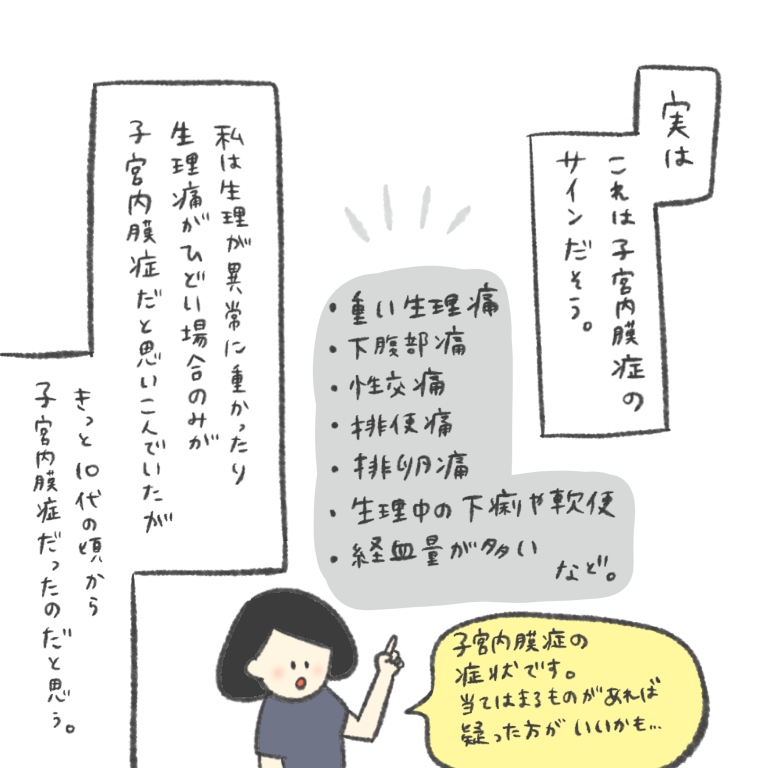 実は
これは子宮内膜症の
サインだそう。
・重い生理痛
・下腹部痛
・性交痛
・排便痛
・排卵痛
・生理中の下痢や軟便
・経血量が多い
など。
私は生理が異常に重かったり
生理痛がひどい場合のみが
子宮内膜症だと思いこんでいたが
きっと10代の頃から
子宮内膜症だったのだと思う。
子宮内膜症の
症状です。
当てはまるものがあれば
疑った方がいいかも…